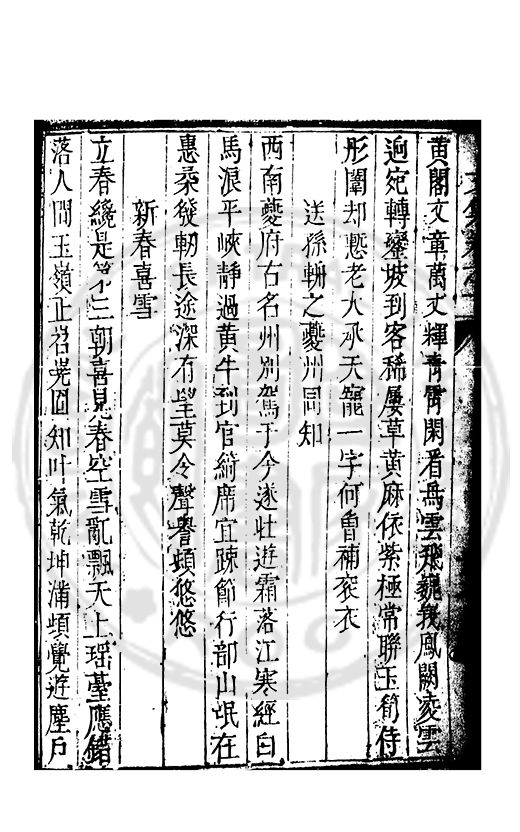 黃閣文章萬丈輝青霄閑看五雲飛巍峩鳳闕凌雲
逈宛轉鑾坡到客稀屢草黃麻依紫極常聯玉筍侍
彤闈却慙老大承天寵一字何曾補袞衣
送孫軵之夔州同知
西南夔府右名州別駕于今遂壯遊霜落江寒經白
馬浪平峽靜過黃牛到官綺席宜踈節行部山氓在
惠柔發軔長途深有望莫令聲譽頓悠悠
新春喜雪
立春纔是第三朝喜見春空雪亂飄天上瑶臺應錯
落人間玉嶺正岧嶤回知叶氣乾坤滿頓覺遊塵戶